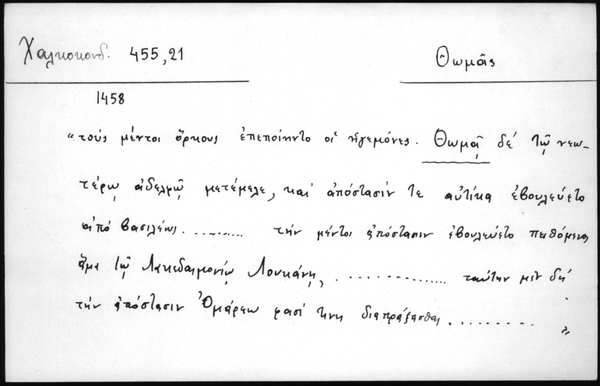 Χαλκοκονδ. 455,21
Θωμᾶς
1458
"τοὺς μέντοι ὅρκους ἐπεποίηντο οἱ ἡγεμόνες. Θωμᾷ δέ τῷ νεω-
τέρῳ ἀδελφῷ μετέμελε, καὶ ἀπόστασίν τε αὐτίκα ἐβουλεύετο
ἀπὸ βασιλέως .......... τὴν μέντοι ἀπόστασιν ἐβουλεύετο πειθόμενος
ἅμα τῷ Λακεδαιμονίῳ Λουκάνῃ, ............... ταύτην μὲν δὴ
τὴν ἀπόστασιν Ὀμάρεω φασί διαπράξασθαι ......... "